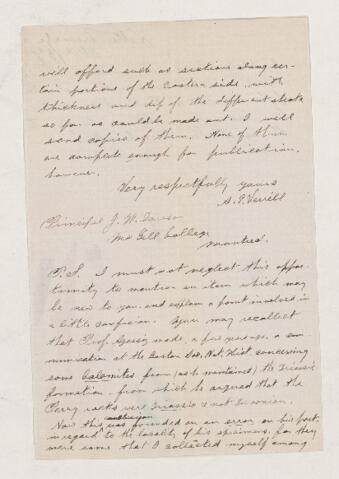 will afford such as sections along cer-
tain portions of the Eastern side, with
thickness and dip of the different strata
so far as could be made out. I will
send copies of them. None of them
are complete enough for publication,
however.
Very respectfully yours
A. E. Verrill
Principal J. W. Dawson
McGill College
Montreal.
P.S. I must not neglect this oppor-
tunity to mention an item which may
be new to you and explain a point involved in
a little confusion. You may recollect
that Prof. Agassiz made, a few years ago, a com
munication at the Boston Soc. Nat. Hist. concerning
some Calamites from (as he maintained) the Triassic
formation - from which he argued that the
Perry rocks were Triassic & not Devonian.
Now this conclusion was founded on an error on his part,
in regard to the locality of his specimens, for they
were some that I collected myself among